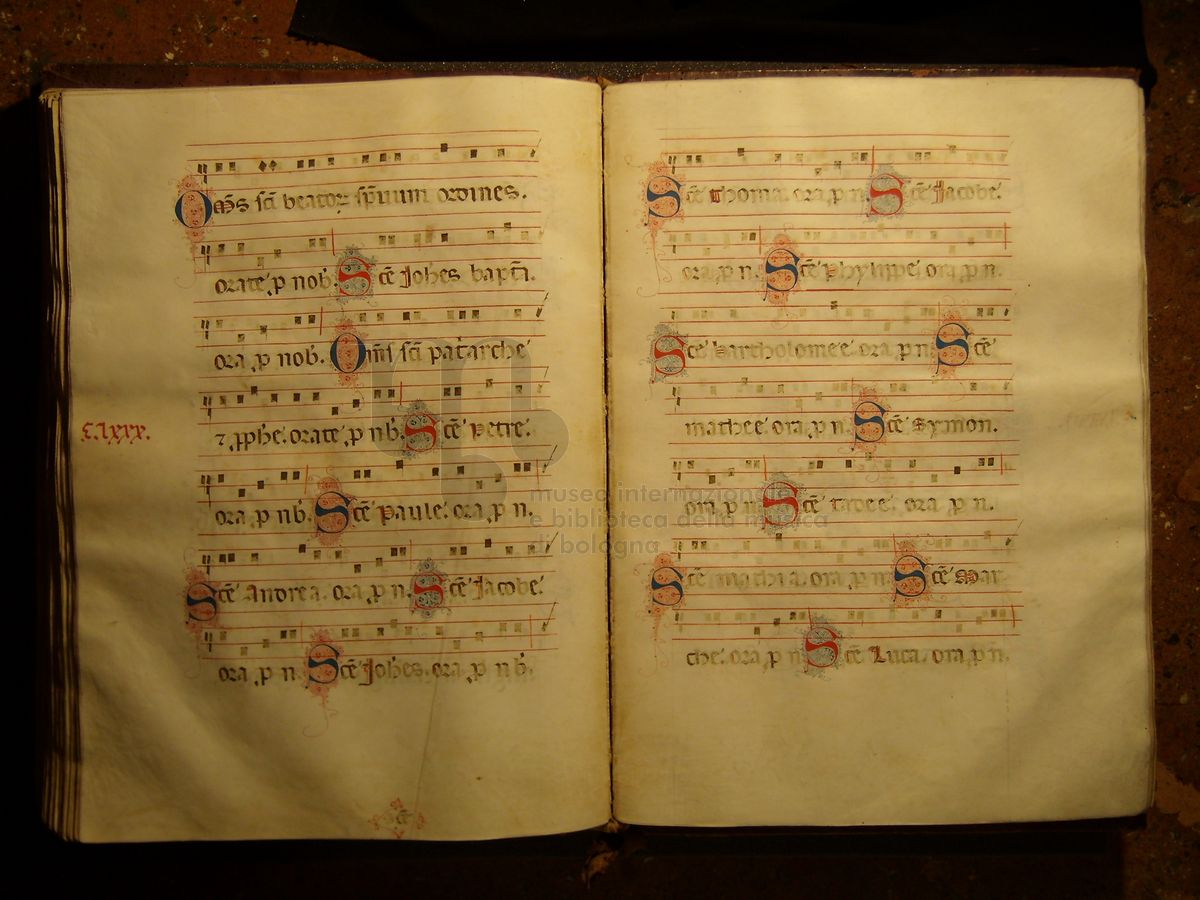 Om̄s sc̄i beatoꝝ sp̄ituum ordines.
orate, p nob. Sce Johēs bapt̄i.
ora, p nob. Om̄s sc̄i pat̄arche
CLXXX.
⁊ ꝓphe. orate, p nb. Sce Petre.
ora, p nb. Sce Paule. ora, p n.
Sce Andrea. ora, p n. Sce Jacobe.
ora, p n. Sce Johēs. ora, p n b.
Sce Thoma. ora, p n. Sce Jacobe.
ora, p n. Sce Phylippe. ora, p n.
Sce Bartholomee. ora, p n. Sce
mathee ora, p n. Sce Symon.
ora, p n. Sce Tadee. ora, p n.
Sce Mathia. ora, p n. Sce Mar
che. ora, p n. Sce Luca. ora, p n.
museo internazionale
e biblioteca della musica
di bologna